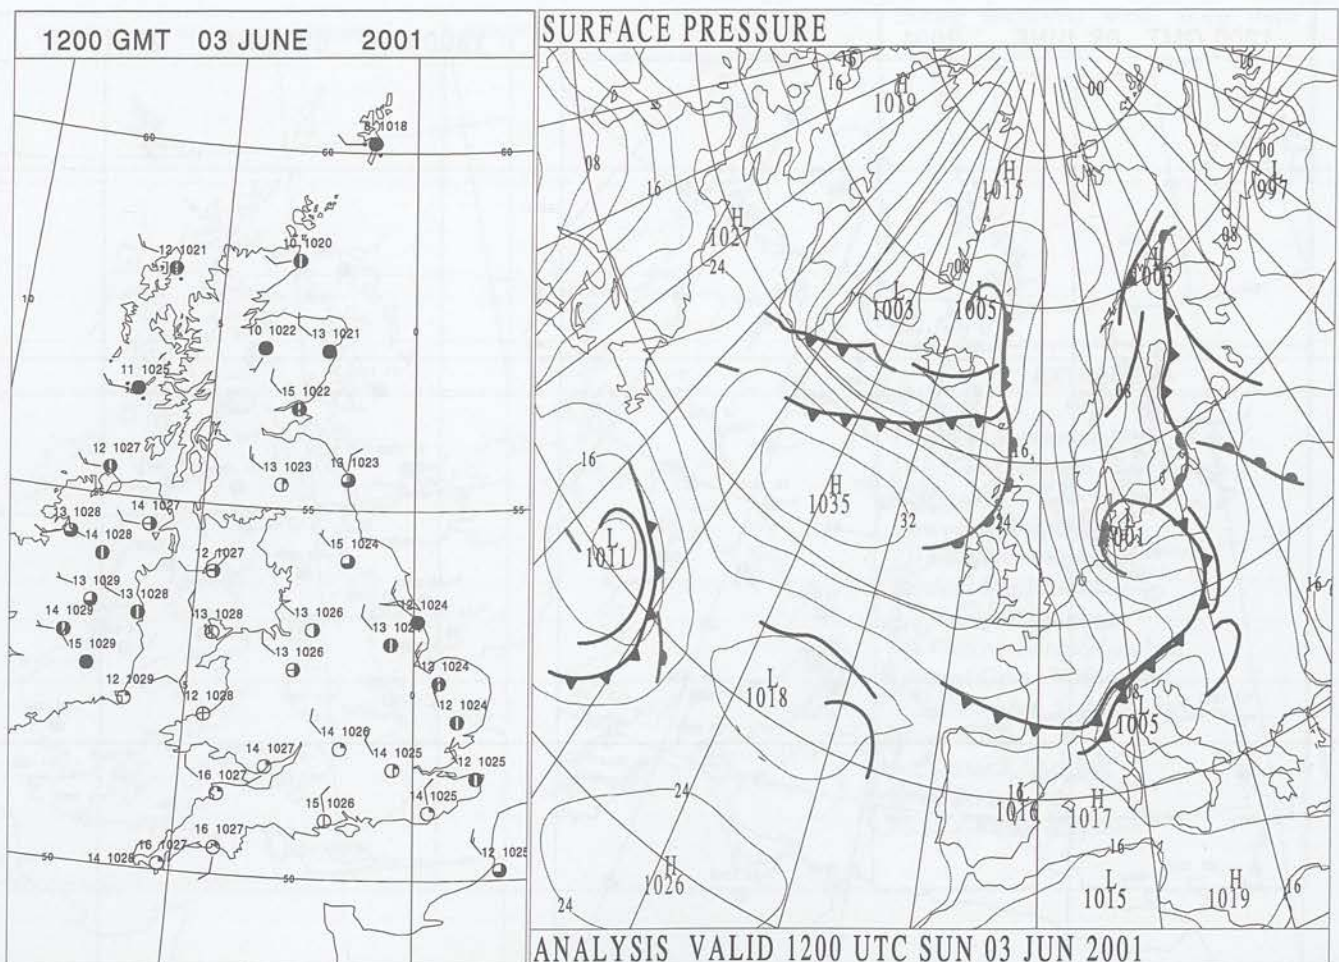 1200 GMT 03 JUNE 2001
8 1018
60
60
60
12 1021
10 1020
10
5
0
10 1022
13 1021
11 1025
15 1022
12 1027
13 1023
13 1023
55
55
55
13 1028
14 1027
14 1028
12 1027
15 1024
13 1029
13 1028
14 1029
13 1028
13 1026
12 1024
15 1029
13 1026
12 1029
5
12 1028
0
12 1024
12 1024
14 1027
14 1026
14 1025
12 1025
16 1027
15 1026
14 1025
16 1027
16 1027
14 1028
50
50
12 1025
SURFACE PRESSURE
16
16
16
H
1019
00
08
16
H
1015
00
L
997
H
1027
24
08
08
L
1003
L
1003
L
1005
08
16
16
H
1035
32
24
L
1011
L
1001
16
L
1018
08
L
1005
24
16
1016
H
1017
16
H
1026
24
L
1015
H
1019
16
ANALYSIS VALID 1200 UTC SUN 03 JUN 2001